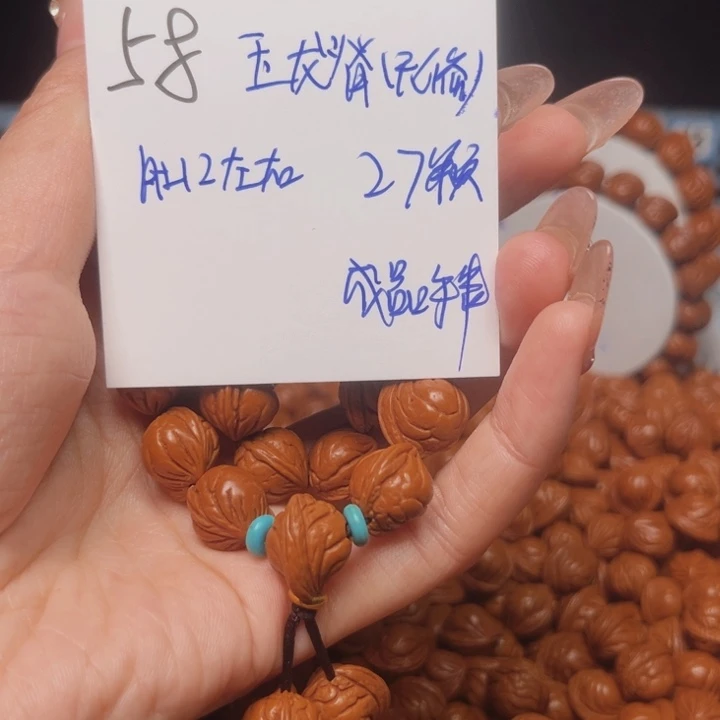 58 玉龙脊(无修)
肚12左右 27颗
成品手串